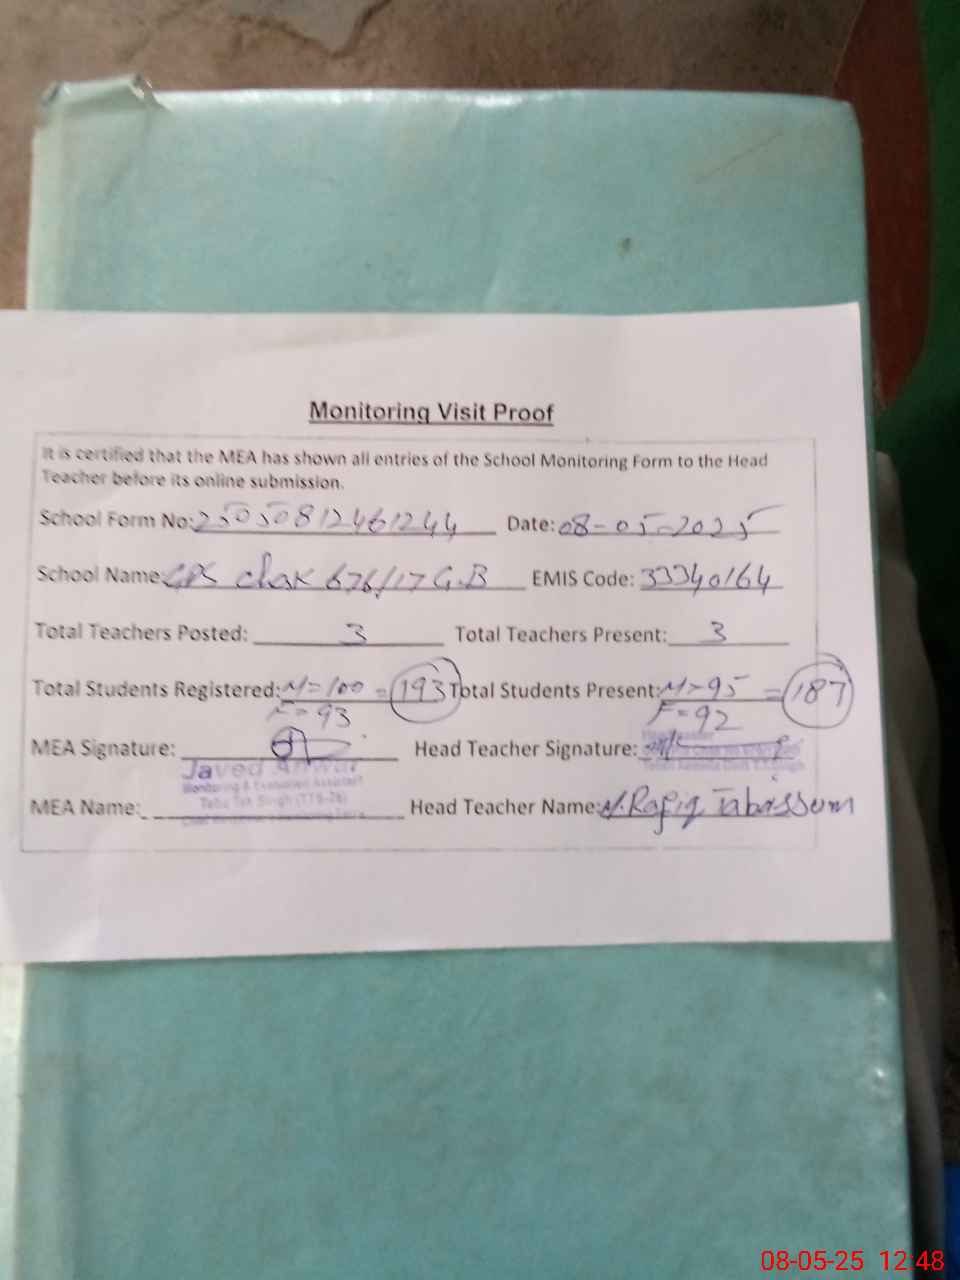 Monitoring Visit Proof
It is certified that the MEA has shown all entries of the School Monitoring Form to the Head
Teacher before its online submission.
School Form No: 25050812461244 Date: 08-05-2025
School Name: GPS chak 676/17 G.B EMIS Code: 33340164
Total Teachers Posted: 3 Total Teachers Present: 3
Total Students Registered: M=100 = 193 Total Students Present: M=95 = 187
F=93 F=92
MEA Signature: Head Teacher Signature:
Javed Anwar
Monitoring & Evaluation Assistant
Toba Tek Singh
MEA Name: Head Teacher Name: M. Rafiq Tabassum
08-05-25 12:48